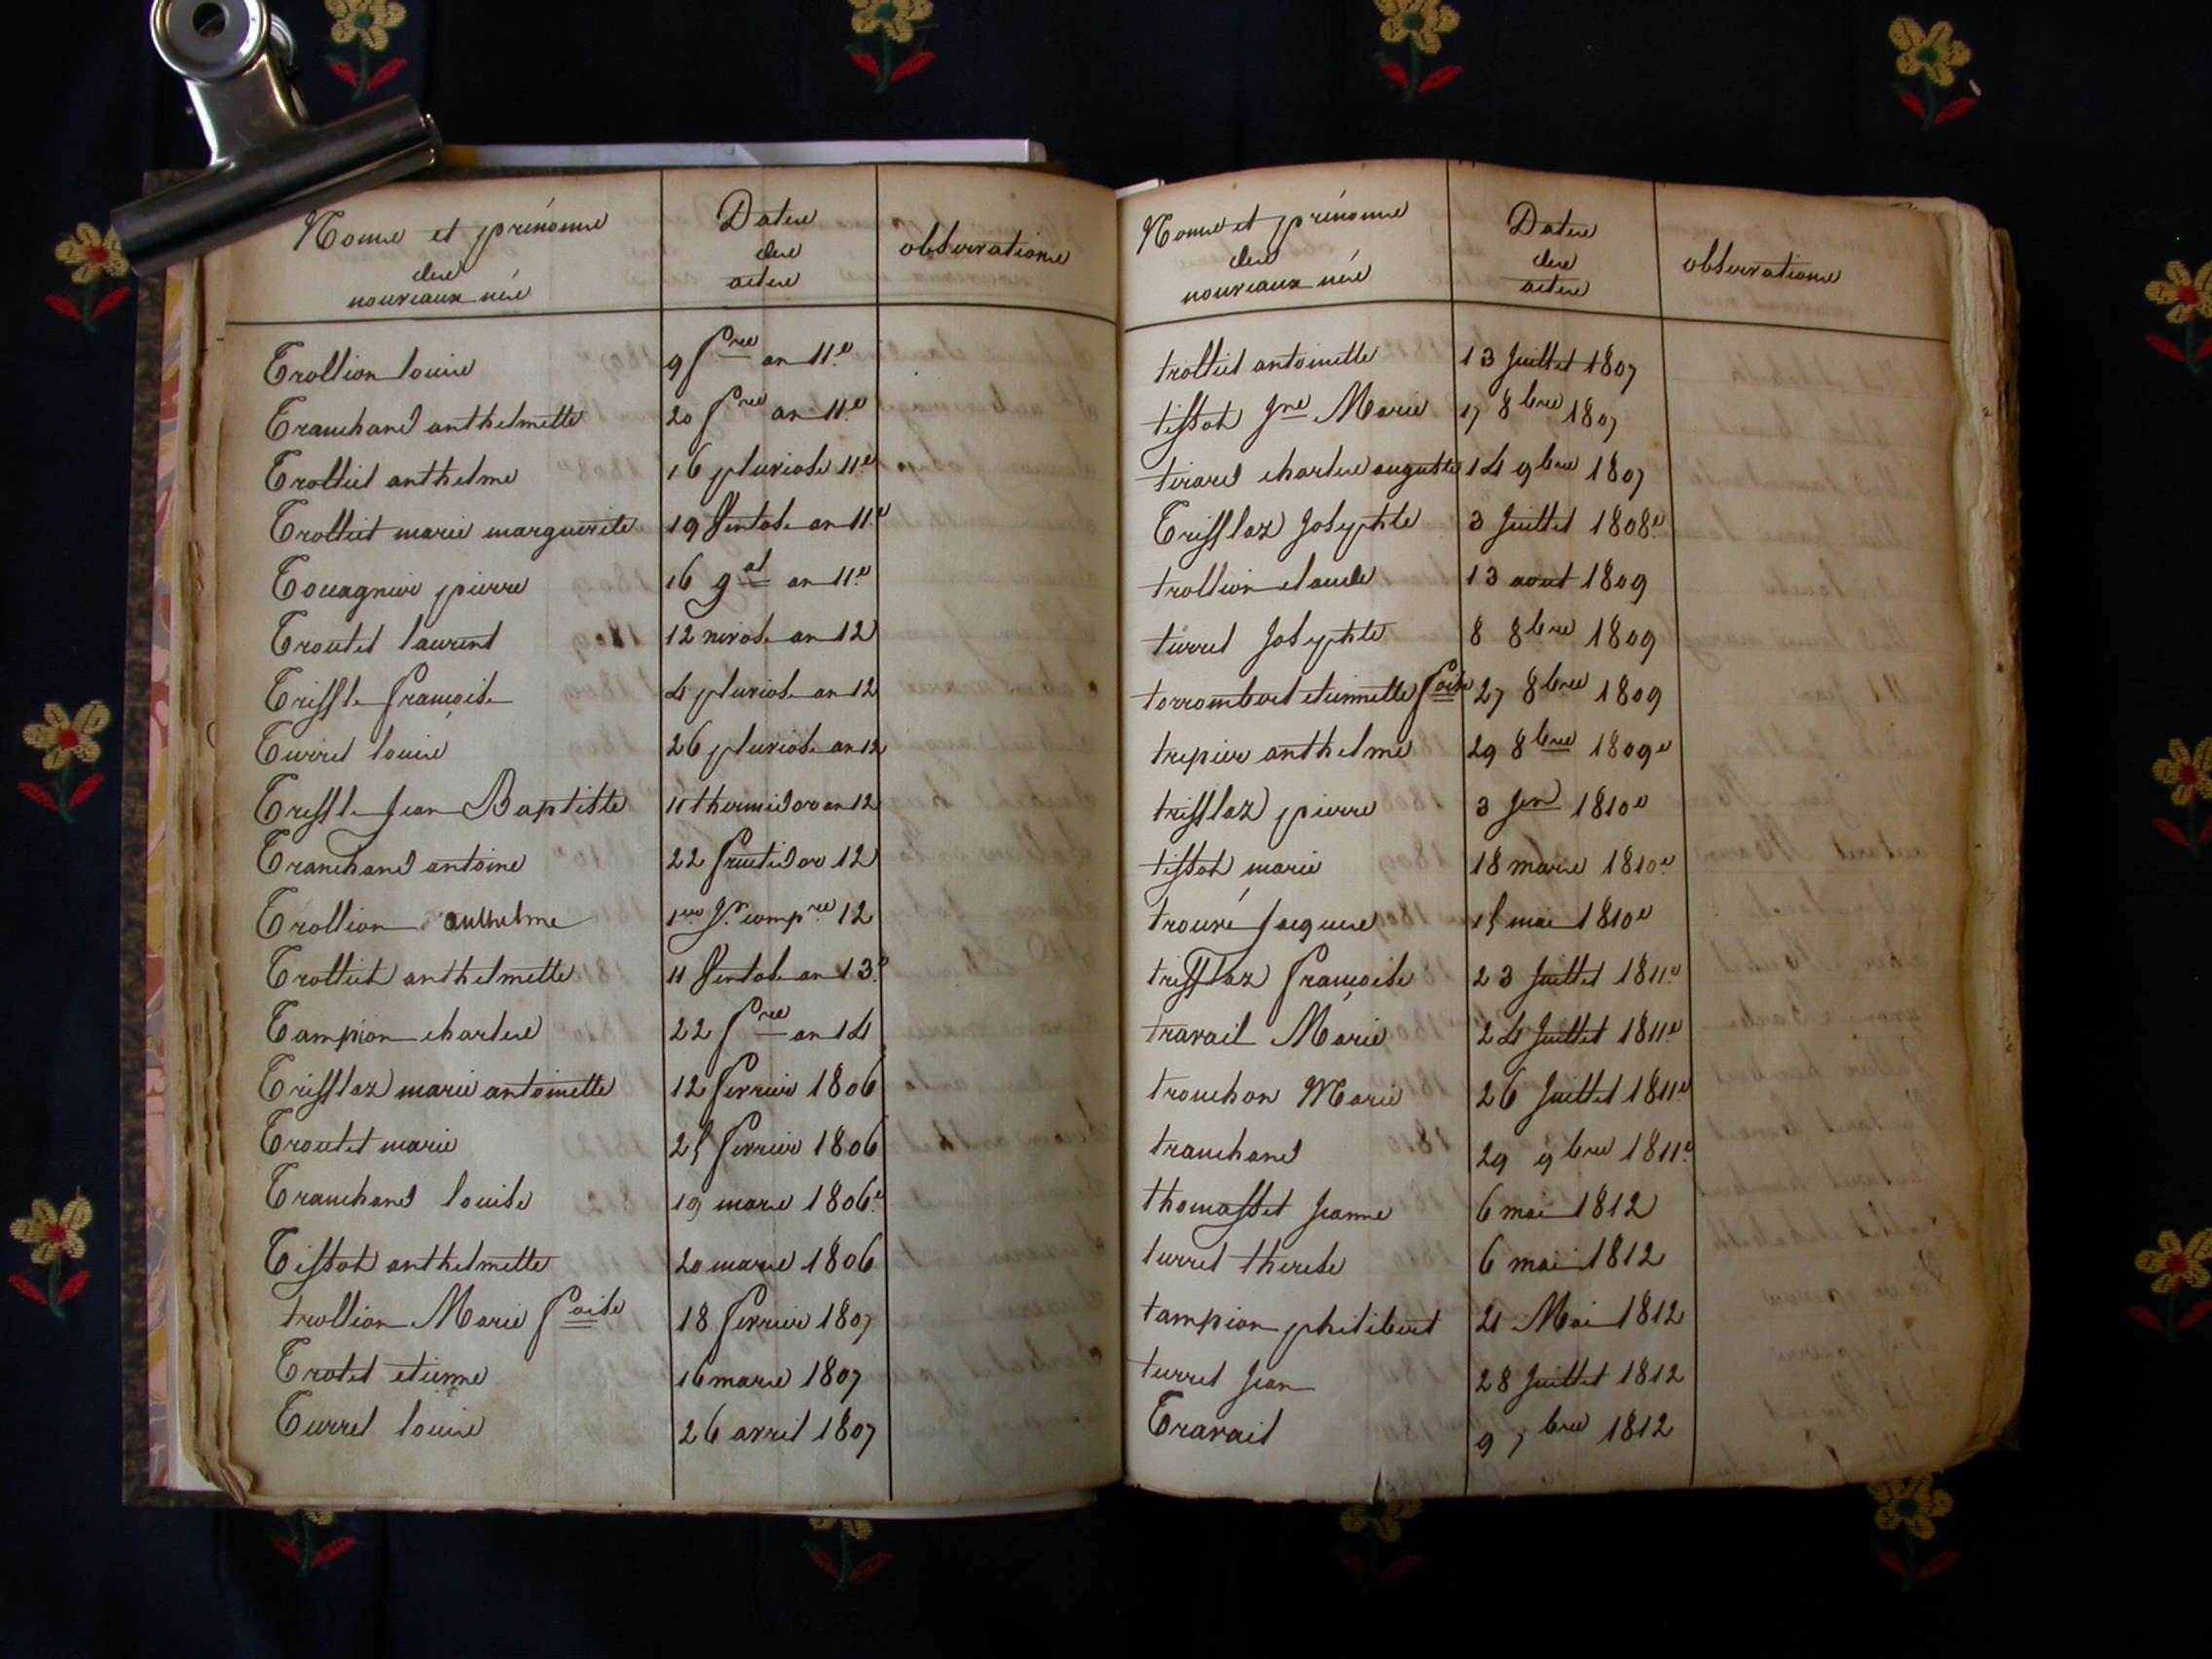 Noms et prénoms
des
nouveaux nés
Dates
des
actes
observations
Trollion louis 9 f.re an 11.e
Tranchand anthelmette 20 f.re an 11.e
Trolliet anthelme 16 pluviose 11.e
Trolliet marie marguerite 19 Ventose an 11.e
Touagnier pierre 16 g.al an 11.e
Troutet laurent 12 nivose an 12
Triffle françoise 4 pluviose an 12
Turrel louis 26 pluviose an 12
Triffle Jean Baptiste 11 thermidor an 12
Tranchand antoine 22 fructidor 12
Trollion anthelme 1er Jr. comp.re 12
Trolliet anthelmette 11 Ventose an 13.e
Tampion charles 22 f.re an 14
Trifflaz marie antoinette 12 fevrier 1806
Troutet marie 25 fevrier 1806
Tranchand louise 19 mars 1806.e
Tissot anthelmette 20 mars 1806
trollion Marie f.oise 18 fevrier 1807
Trotet etienne 16 mars 1807
Turrel louis 26 avril 1807
Noms et prénoms
des
nouveaux nés
Dates
des
actes
observations
trolliet antoinette 13 Juillet 1807
tissot Jne Marie 17 8bre 1807
tirard charles auguste 14 9bre 1807
Trifflaz Josephte 3 Juillet 1808.e
trollion claude 13 aout 1809
turrel Josephte 8 8bre 1809
torrombert etiennette f.oise 27 8bre 1809
trepier anthelme 29 8bre 1809e
trifflaz pierre 3 Jer 1810e
tissot marie 18 mars 1810.e
trouvé Jacques 15 mai 1810e
trifflaz françoise 23 Juillet 1811.e
travail Marie 24 Juillet 1811.e
tronchon Marie 26 Juillet 1811.e
tranchand 29 9bre 1811.e
thomasset Jeanne 6 mai 1812
turrel therese 6 mai 1812
tampion philibert 21 Mai 1812
turrel Jean 28 Juillet 1812
Travail 9 7bre 1812